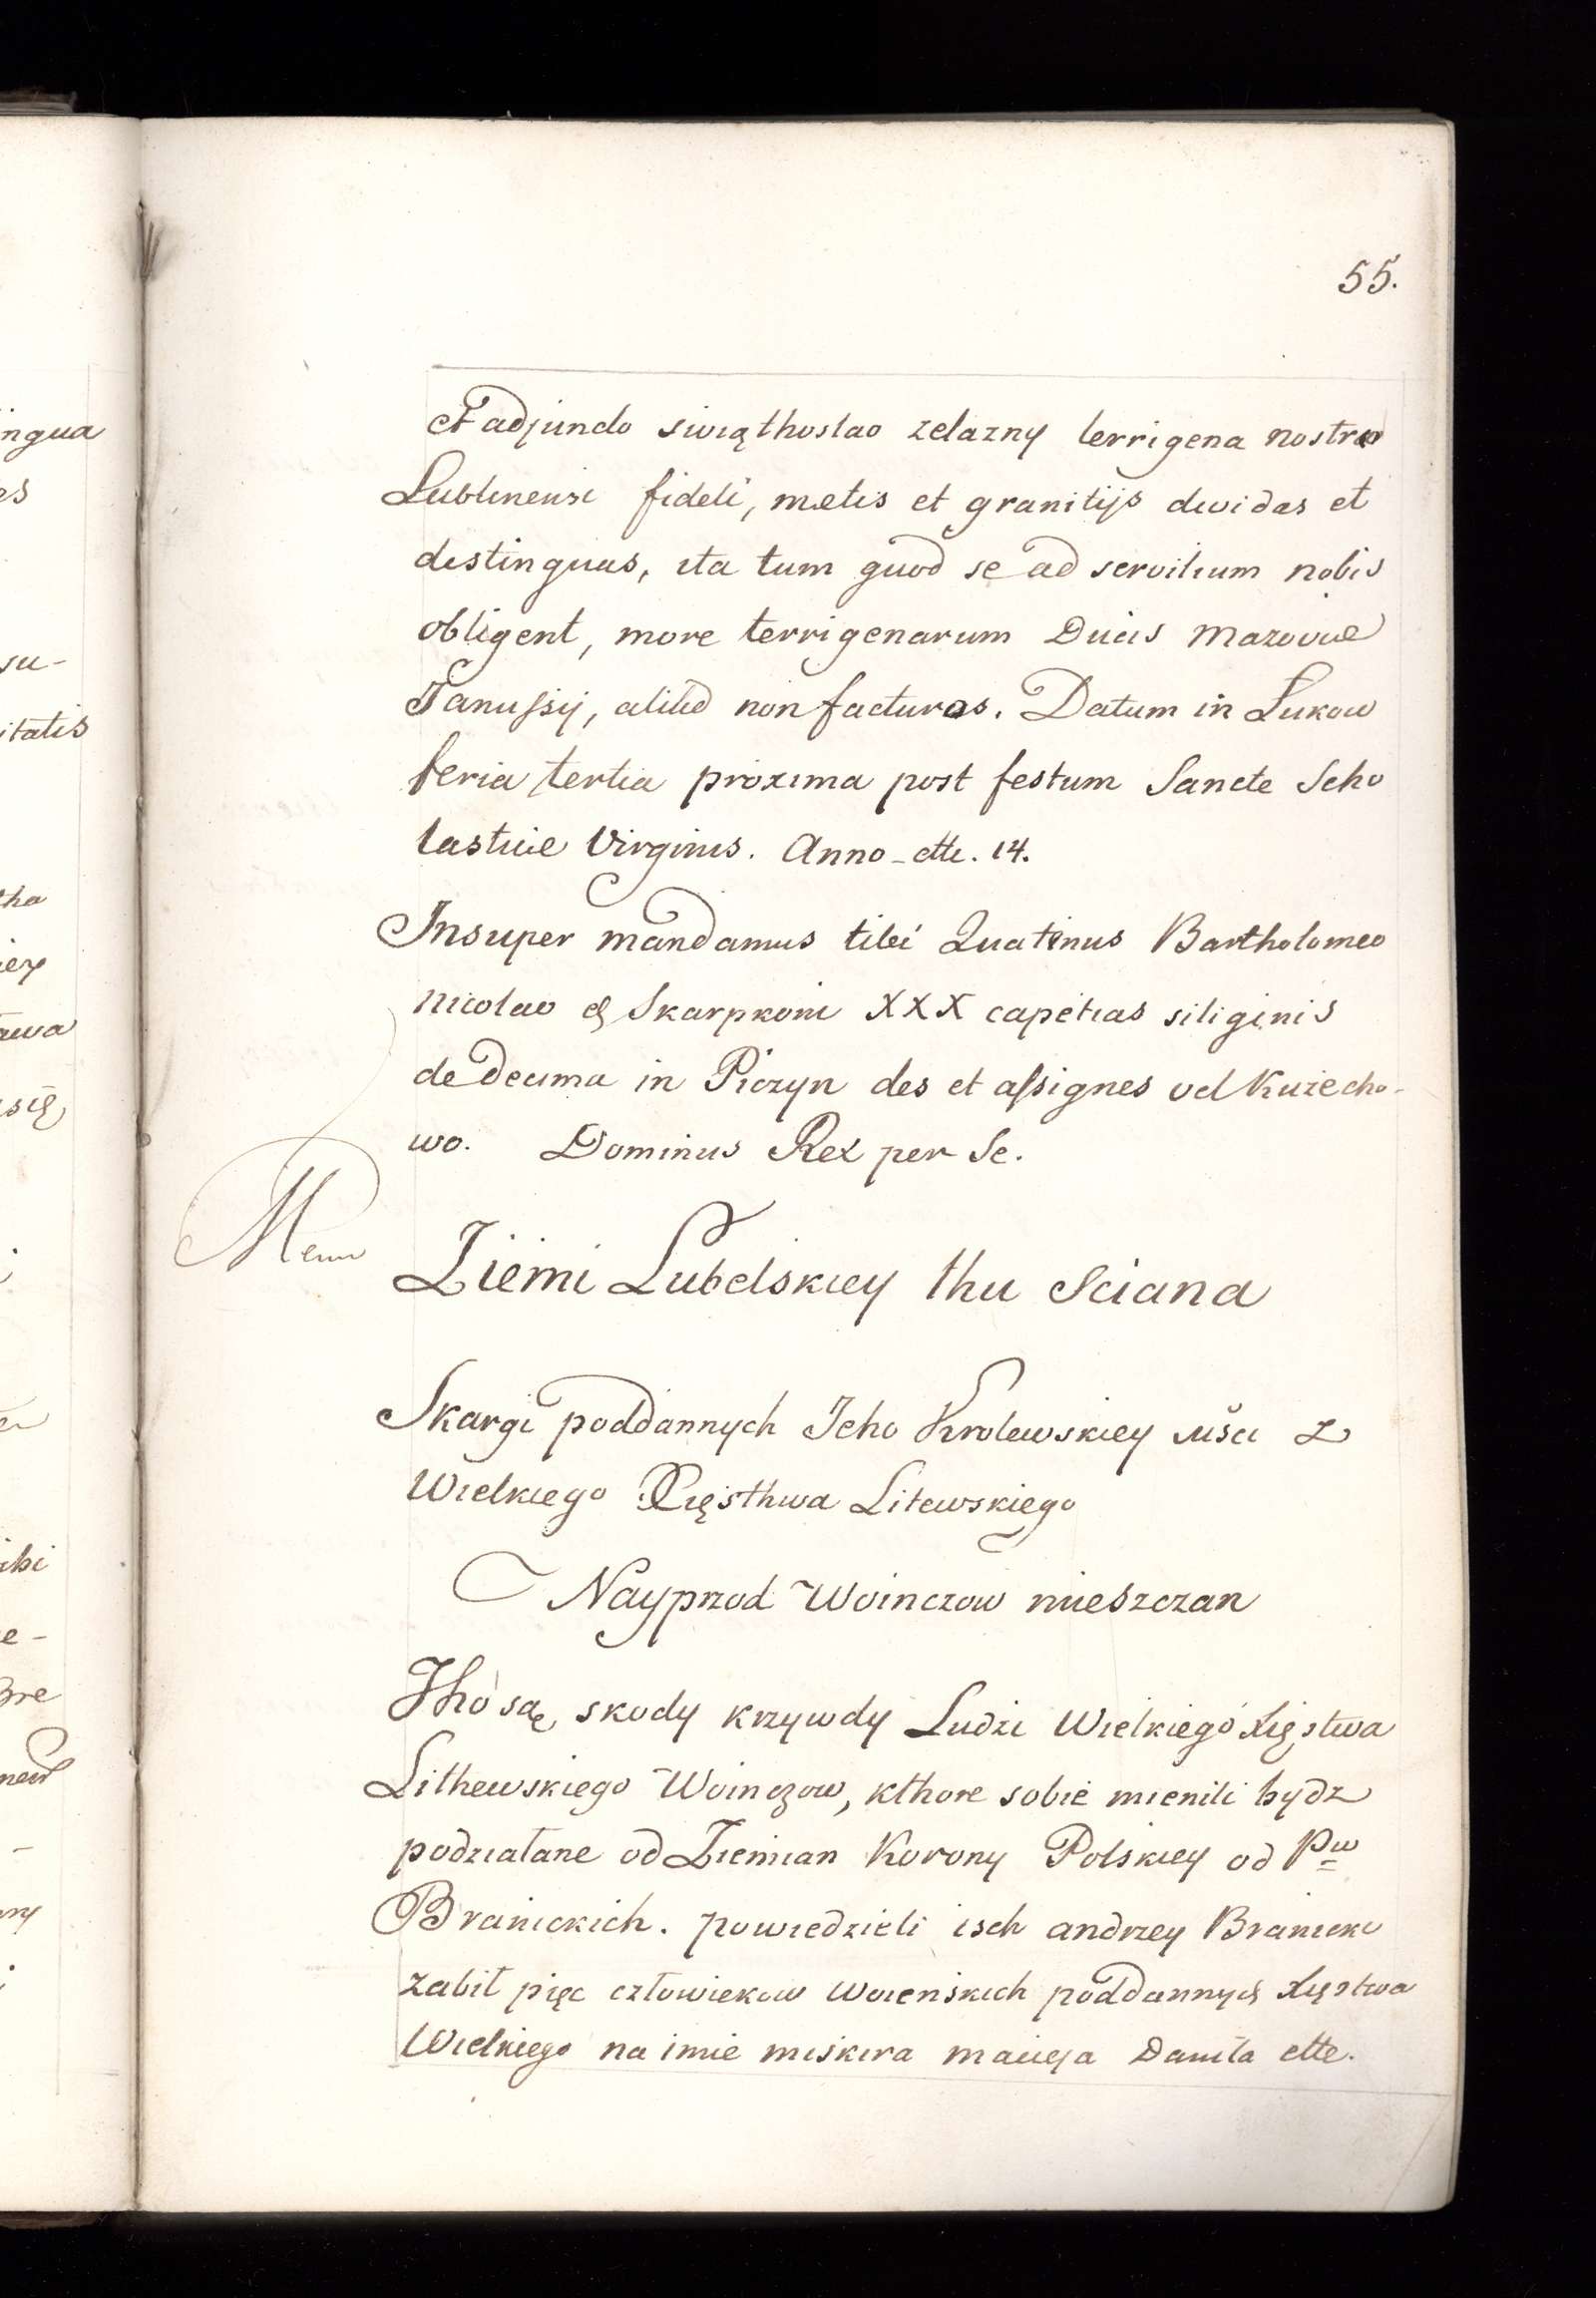 55.
Et adjundo swiąthoslao zelazny terrigena nostro
Lublinensi fideli, metis et granitijs dividas et
distinguas, ita tum quod se ad servitium nobis
obligent, more terrigenarum Ducis Mazovie
Janussij, aliud non facturos. Datum in Lukow
feria tertia proxima post festum Sancte Scho
lastice Virginis. Anno ette. 14.
Insuper mandamus tibi Quatinus Bartholomeo
Nicolao & Skarpkoni XXX capetias siliginis
de Decima in Piczyn des et assignes vel Kuzecho-
wo. Dominus Rex per Se.
Ziemi Lubelskiey thu Sciana
Skargi poddannych Jeho Krolewskiey Mści z
Wielkiego Xięsthwa Litewskiego
Nayprzod Woinczow mieszczan
Tho są skody krzywdy Ludzi Wielkiego Xięstwa
Lithewskiego Woinczow, kthore sobie mienili bydz
podzialane od Ziemian Korony Polskiey od Pw
Branickich. powiedzieli isch andrzey Branicki
zabił pięc człowiekow woienskich poddannych Xięstwa
Wielkiego na imie miskira macieja Daniła ette.
ngua
es
su-
itatis
tha
iey
awa
się
e-